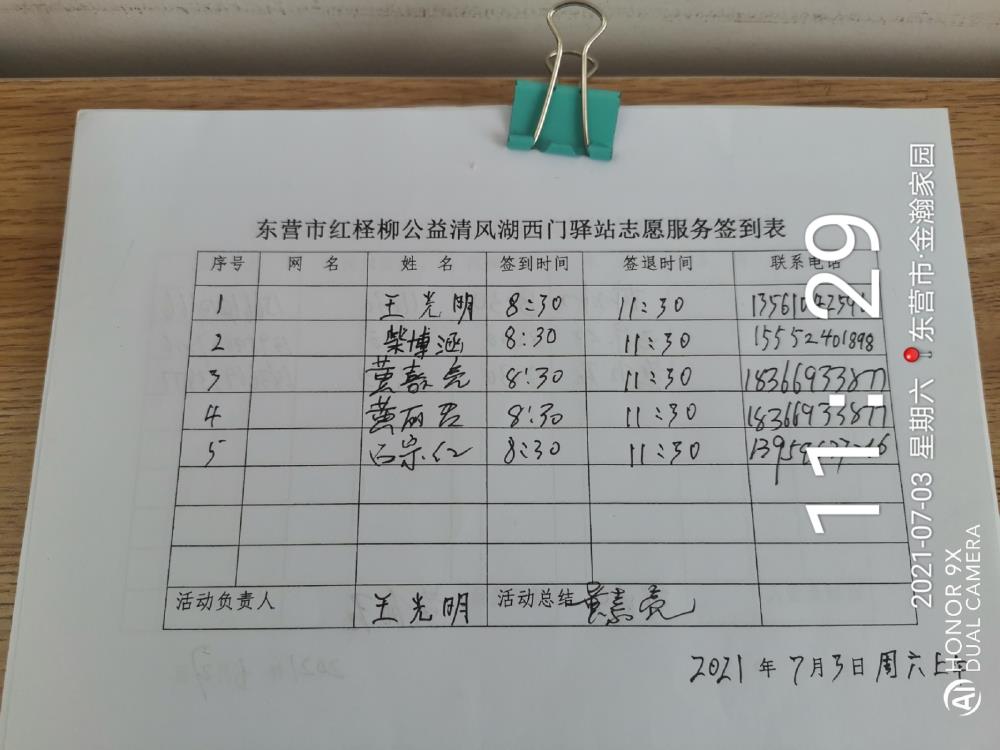 东营市红柽柳公益清风湖西门驿站志愿服务签到表
序号 网 名 姓 名 签到时间 签退时间 联系电话
1 王光明 8:30 11:30
2 柴博涵 8:30 11:30 15552401898
3 黄嘉亮 8:30 11:30 18366933877
4 黄丽君 8:30 11:30 18366933877
5 石宗仁 8:30 11:30
活动负责人 王光明 活动总结
2021年7月3日周六上午
11:29
2021-07-03 星期六 东营市·金瀚家园
HONOR 9X
DUAL CAMERA